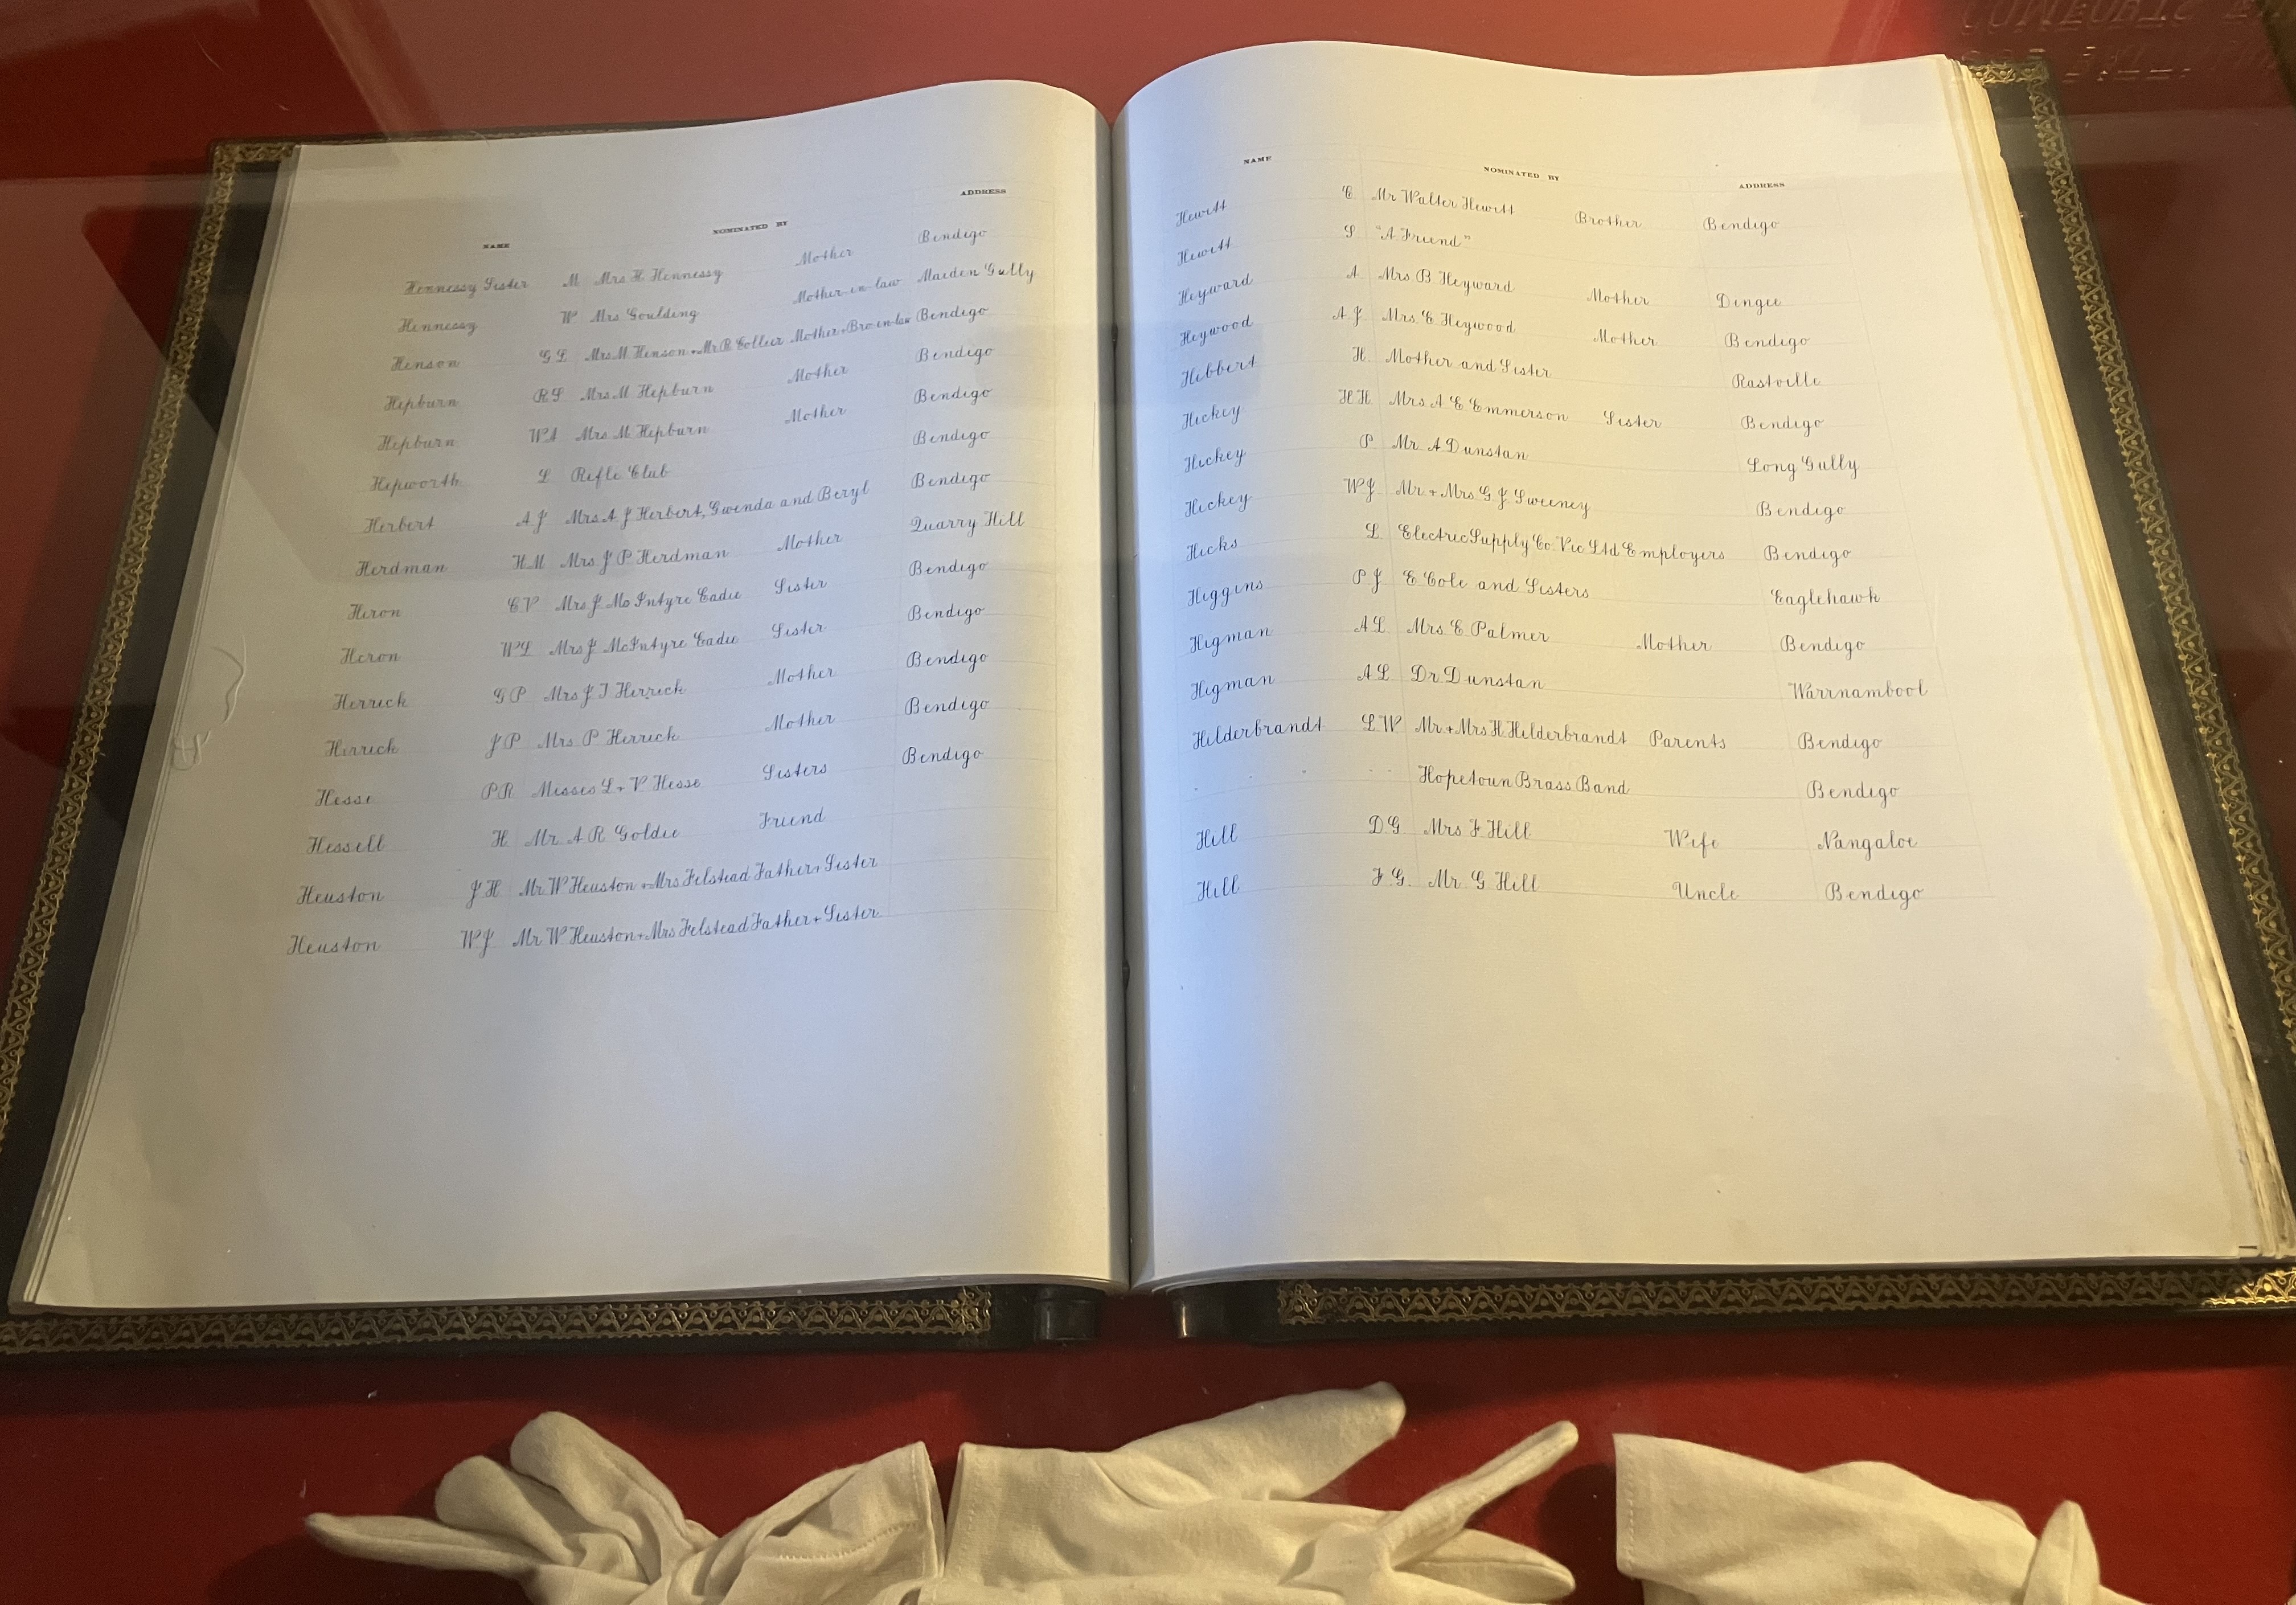 NAME NOMINATED BY ADDRESS
Hennessy Sister M Mrs H Hennessy Mother Bendigo
Hennessy W Mrs Goulding Mother-in-law Maiden Gully
Henson G L Mrs M Henson + Mr R Collier Mother + Bro in-law Bendigo
Hepburn R S Mrs M Hepburn Mother Bendigo
Hepburn W A Mrs M Hepburn Mother Bendigo
Hepworth L Rifle Club Bendigo
Herbert A J Mrs A J Herbert, Gwenda and Beryl Bendigo
Herdman H M Mrs J P Herdman Mother Quarry Hill
Heron C V Mrs J McIntyre Eadie Sister Bendigo
Heron W L Mrs J McIntyre Eadie Sister Bendigo
Herrick G P Mrs J T Herrick Mother Bendigo
Herrick J P Mrs P Herrick Mother Bendigo
Hesse P R Misses L + V Hesse Sisters Bendigo
Hessell H Mr A R Goldie Friend
Heuston J H Mr W Heuston + Mrs Felstead Father + Sister
Heuston W J Mr W Heuston + Mrs Felstead Father + Sister
NAME NOMINATED BY ADDRESS
Hewitt C Mr Walter Hewitt Brother Bendigo
Hewitt S "A Friend"
Heyward A Mrs B Heyward Mother Dingee
Heywood A J Mrs E Heywood Mother Bendigo
Hibbert H Mother and Sister Rastville
Hickey H H Mrs A E Emmerson Sister Bendigo
Hickey P Mr A Dunstan Long Gully
Hickey W J Mr + Mrs G J Sweeney Bendigo
Hicks L Electric Supply Co. Vic Ltd Employers Bendigo
Higgins P J E Cole and Sisters Eaglehawk
Higman A L Mrs E Palmer Mother Bendigo
Higman A L Dr Dunstan Warrnambool
Hilderbrandt L W Mr + Mrs H Hilderbrandt Parents Bendigo
Hopetoun Brass Band Bendigo
Hill D G Mrs F Hill Wife Nangaloe
Hill F. G. Mr G Hill Uncle Bendigo